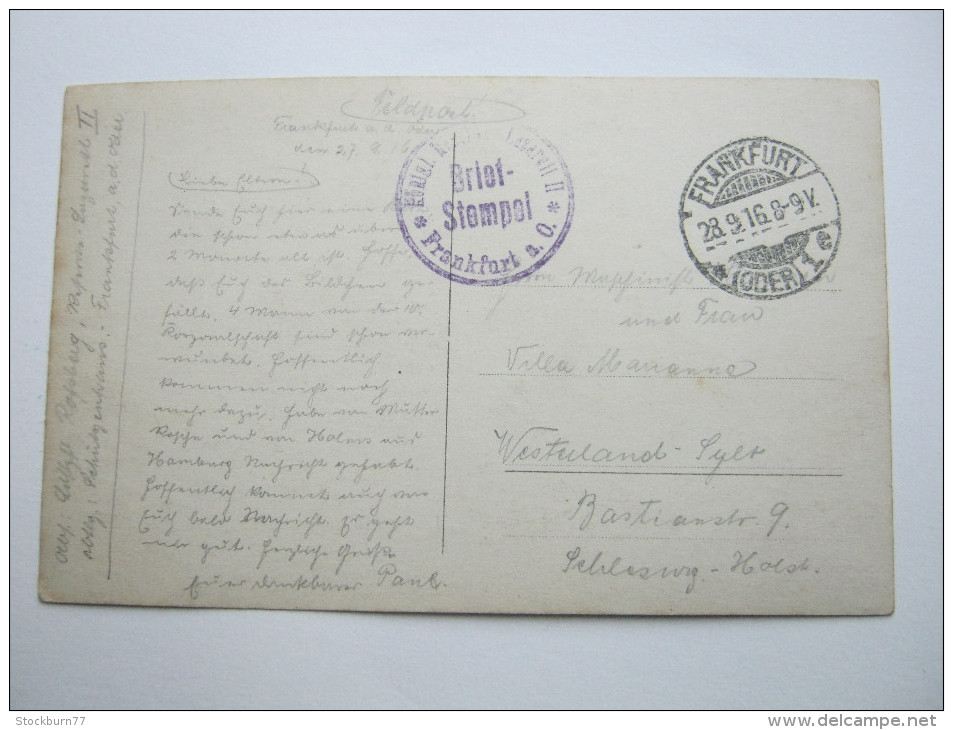 Feldpost.
Frankfurt a. d. Oder
den 27. 9. 16
Liebe Eltern!
Sende Euch hier eine
die schon etwas über
2 Monate alt ist. Hoffe
daß Euch das Bildchen ge-
fällt. 4 Mann von der 10.
Korporalschaft sind schon ver-
wundet. Hoffentlich
kommen nicht noch
mehr dazu. Habe von Mutter
und von aus
Hamburg Nachricht gehabt.
Hoffentlich kommt auch von
Euch bald Nachricht. Es geht
mir gut. Herzliche Grüße
Euer dankbarer Paul.
Abs: Reserve-Lazarett II
Abtlg: Schützenhaus. Frankfurt a. d. Oder
Königl. Lazarett II
Brief-
Stempel
* Frankfurt a. O. *
FRANKFURT
28.9.16.8-9V.
* (ODER) 1 e
Herrn Maschinist
und Frau
Villa Marianne
Westerland-Sylt
Bastianstr. 9.
Schleswig-Holst.
Stockburn77
www.delcampe.net